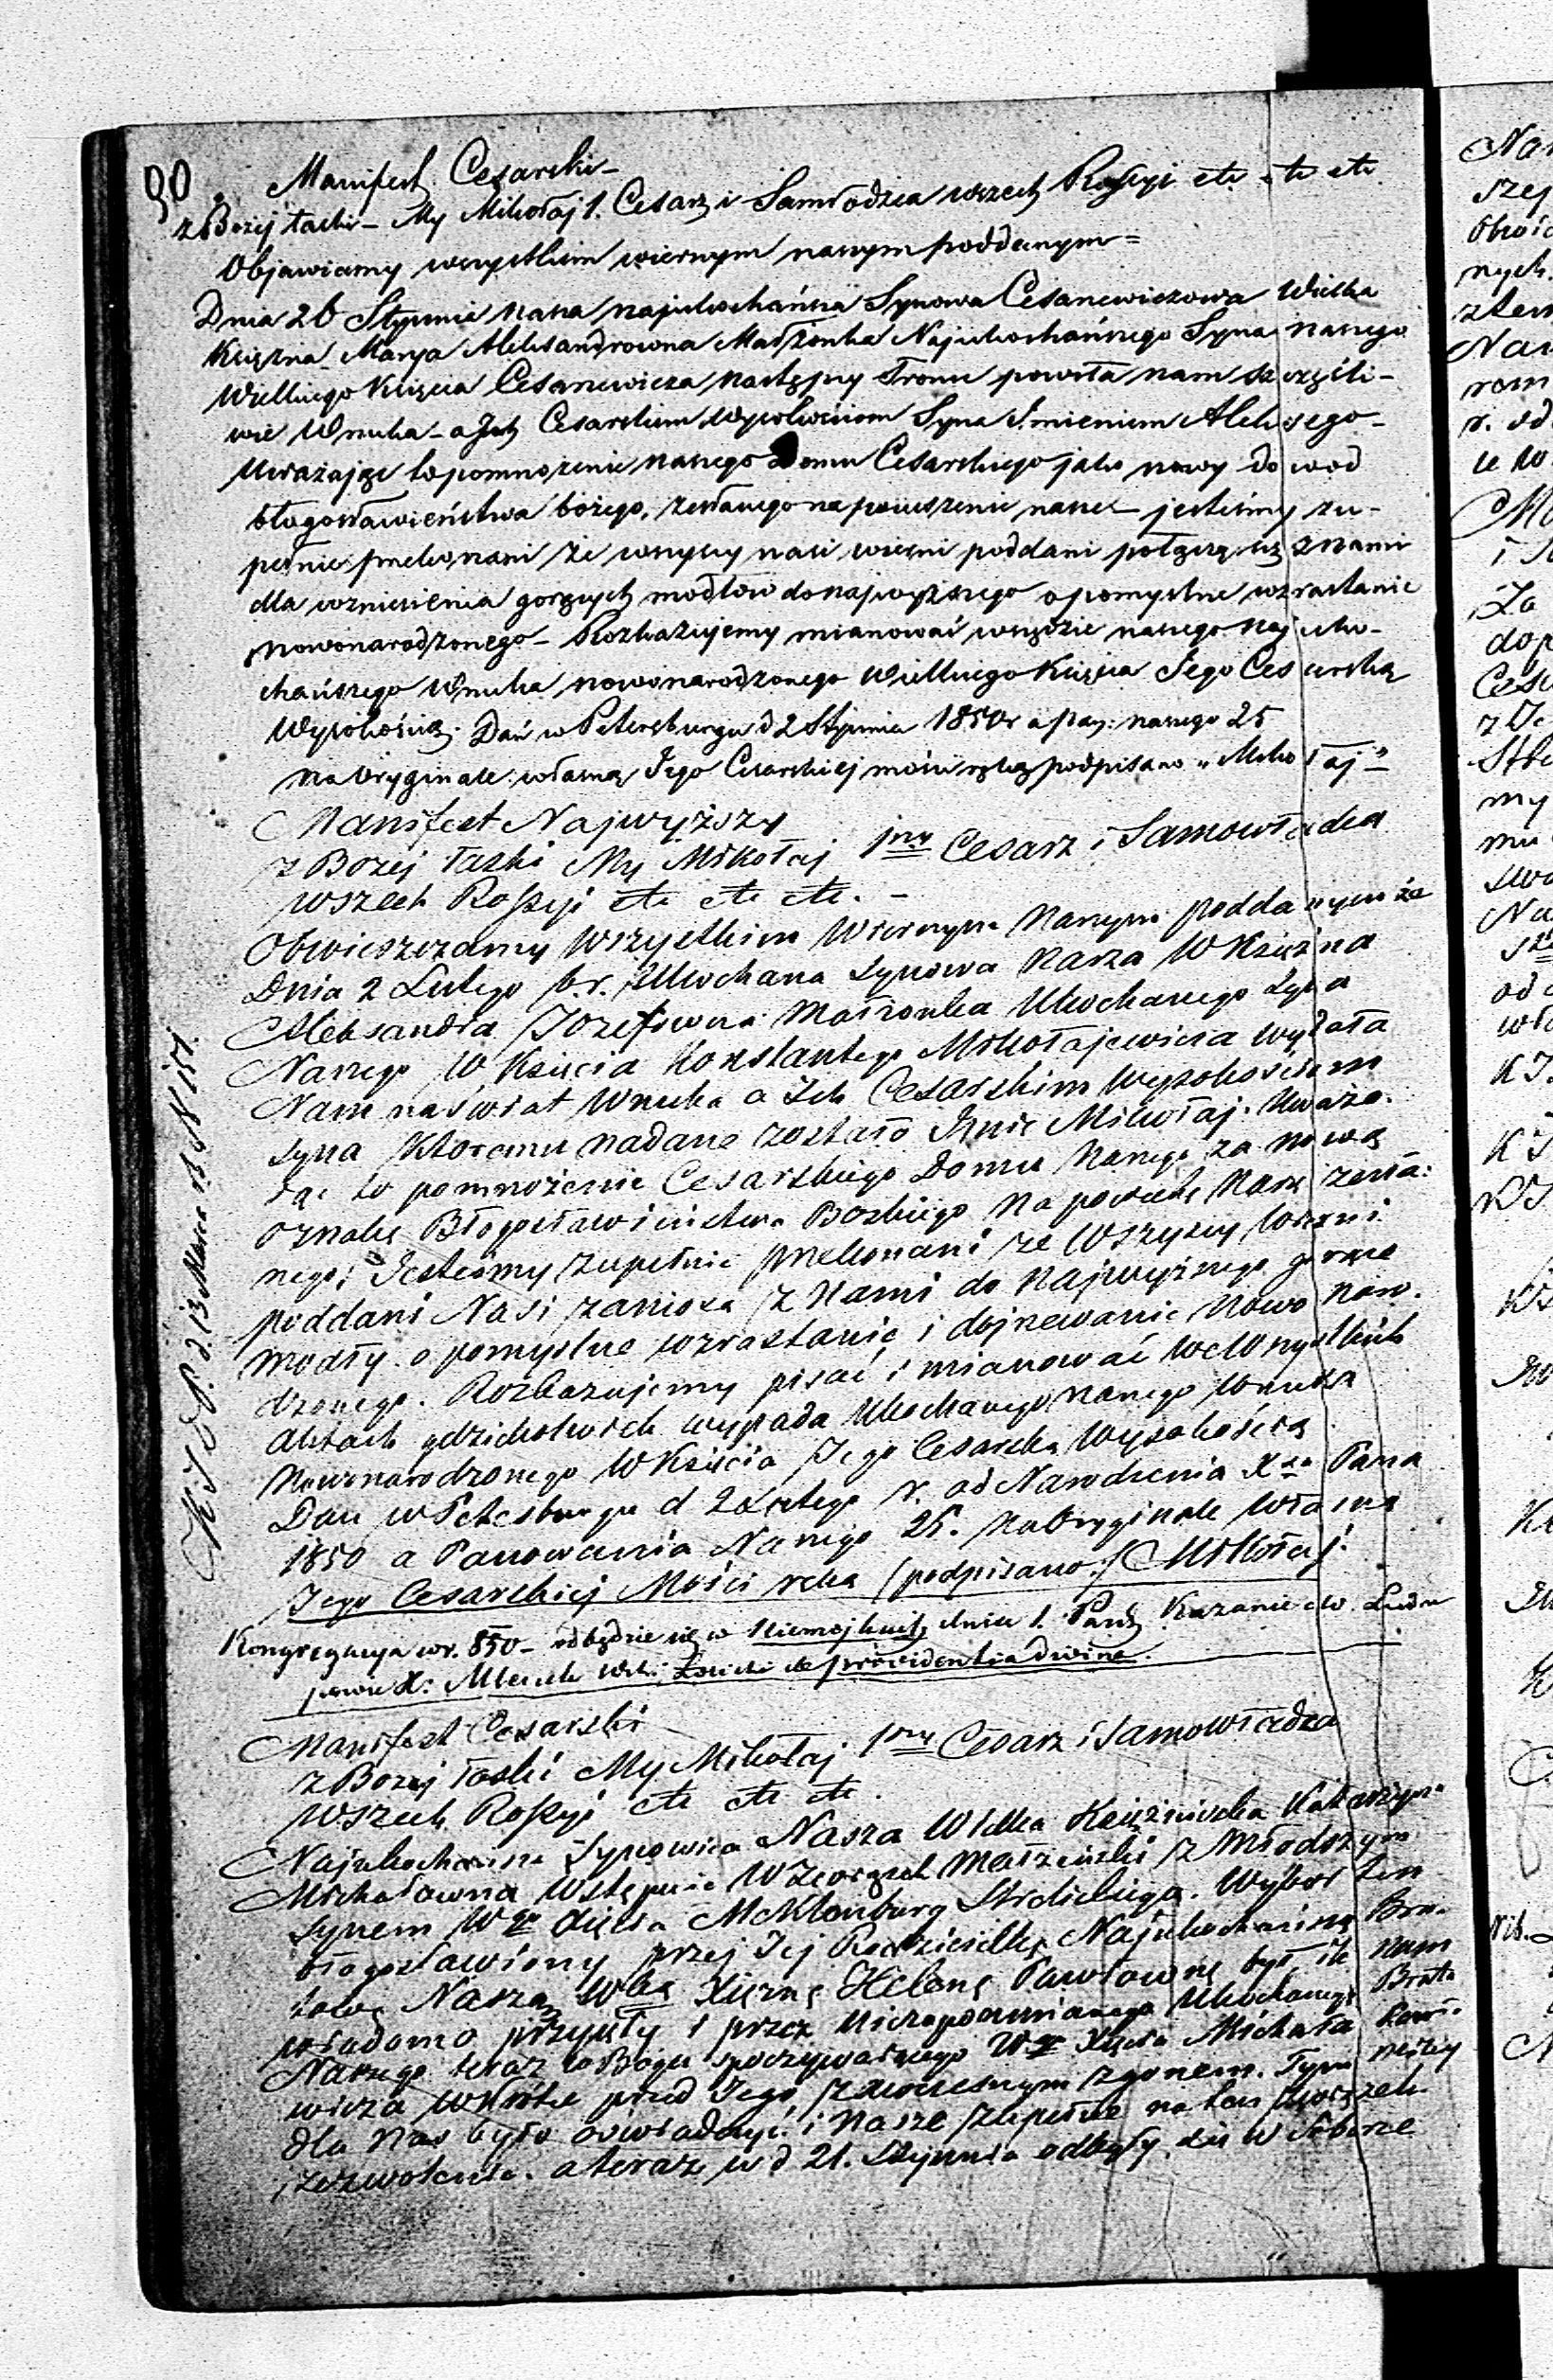 90
Manifest Cesarski
z Bożej łaski – My Mikołaj 1. Cesarz i Samłodzca wszech Rossyi etc etc etc
Objawiamy wszystkim wiernym naszym poddanym =
Dnia 26 Stycznia nasza najukochańsza Synowa Cesarzewiczowa Wielka
Księżna Marya Aleksandrowna Małżonka Najukochańszego Syna naszego
Wielkiego Księcia Cesarzewicza następcy Tronu powiła nam szczęśli-
wie Wnuka – a Ich Cesarskim Wysokościom Syna Imieniem Aleksego –
Uważając to pomnożenie naszego Domu Cesarskiego jako nowy dowod
błogosławieństwa bożego, zesłanego na pocieszenie nasze – jesteśmy zu-
pełnie przekonani że wszyscy nasi wierni poddani połączą się z nami
dla wzniesienia gorących modłów do najwyższego o pomyślne wzrastanie
nowonarodzonego – Rozkazujemy mianować wszędzie naszego najuko-
chańszego Wnuka nowonarodzonego Wielkiego Księcia Jego Cesarską
Wysokością. Dań w Petersburgu d 2 Stycznia 1850r a pan: naszego 25
na Oryginale własną Jego Cesarskiej mości ręką podpisano „Mikołaj"
Manifest Najwyższy
z Bożej łaski My Mikołaj 1szy Cesarz i Samowładca
wszech Rossyi etc etc etc. –
Obwieszczamy Wszystkim Wiernym Naszym poddanym że
Dnia 2 Lutego b.r. Ukochana Synowa Nasza W Księżna
Aleksandra Jozefowna Małżonka Ukochanego Syna
Naszego W Księcia Konstantego Mikołajewicza wydała
Nam na świat Wnuka a Ich Cesarskim Wysokościom
Syna Ktoremu nadane zostało Imie Mikołaj. Uważa-
jąc to pomnożenie Cesarskiego Domu Naszego za nową
oznakę Błogosławieństwa Boskiego na pociechę Naszę zesła-
nego; Jesteśmy zupełnie przekonani że Wszyscy Wierni
poddani Nasi zaniosą z Nami do Najwyższego gorące
modły o pomyślne wzrastanie i dojrzewanie Nowo naro-
dzonego. Rozkazujemy pisać i mianować we Wszystkich
Aktach gdziekolwiek wypada Ukochanego Naszego Wnuka
Nowonarodzonego W Księcia Jego Cesarską Wysokością
Dan w Petesburgu d 2 Lutego r. od Narodzenia Xsa Pana
1850 a Panowania Naszego 25. Na Oryginale własną
Jego Cesarskiej Mości ręką (podpisano:) Mikołaj.
K J d P. d 13 Marca N 151.
Kongregacya w r. 850 – odbędzie się w Niemojkach dnia 1. Paźdz Kazanie do Ludu
powie X: de providentia divina.
Manifest Cesarski
z Bożej łaski My Mikołaj 1szy Cesarz i Samowładca
Wszech Rossyi etc etc etc.
Najukochańsza Synowica Nasza Wielka Księżniczka Katarzyna
Michałowna Wstępuie W Związek Małżeński z młodszym
Synem Wgo Xięcia Meklenburg Strelickiego. Wybor ten
błogosławiony przez Jej Rodzicielkę Najukochańszą Bra-
tową Naszą Wką Xiężnę Helenę Pawłownę był, ile nam
wiadomo przyięty i przez Niezapomnianego Ukochanego Brata
Naszego teraz w Bogu spoczywaiącego Wgo Xięcia Michała Pawło-
wicza wkrótce przed Jego zawczesnym zgonem. Tym
dla Nas było oświadczyć i Nasze zupełne na ten związek
zezwolenie. a teraz w d 21. Stycznia odbyły się w Soborze